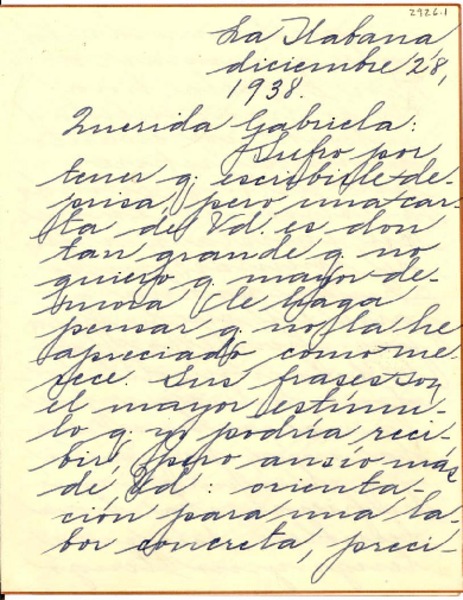 2926.1
La Habana,
diciembre 28,
1938.
Querida Gabriela:
Sufro por
tener q. escribirle de-
prisa, pero una car-
ta de Vd. es don
tan grande q. no
quiero q. mayor de-
mora le haga
pensar q. no la he
apreciado como me-
rece. Sus frases son
el mayor estímu-
lo q. yo podría reci-
bir, pero ansío más
de Vd: orienta-
ción para una la-
bor concreta, preci-